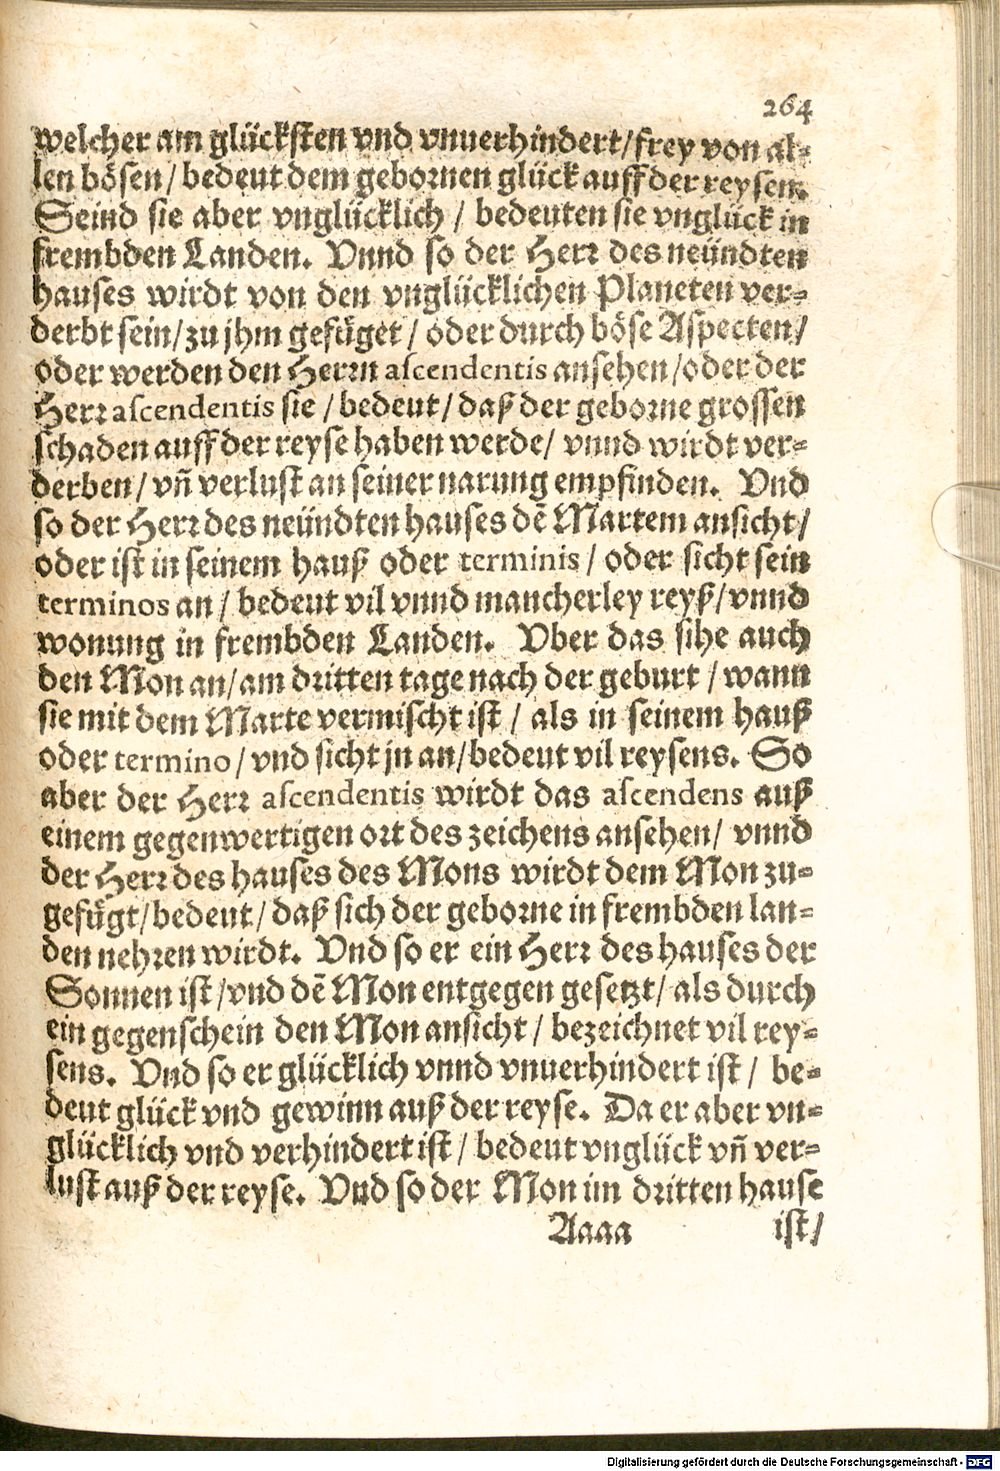 264
welcher am glücksten vnd vnuerhindert/frey von al⸗
len bösen/ bedeut dem gebornen glück auff der reysen.
Seind sie aber vnglücklich / bedeuten sie vnglück in
frembden Landen. Vnnd so der Herr des neündten
hauses wirdt von den vnglücklichen Planeten ver⸗
derbt sein/zu jhm gefüget / oder durch böse Aspecten/
oder werden den Herrn ascendentis ansehen/oder der
Herr ascendentis sie / bedeut/ daß der geborne grossen
schaden auff der reyse haben werde/ vnnd wirdt ver⸗
derben/ vñ verlust an seiner narung empfinden. Vnd
so der Herr des neündten hauses dẽ Martem ansicht/
oder ist in seinem hauß oder terminis / oder sicht sein
terminos an/ bedeut vil vnnd mancherley reyß/vnnd
wonung in frembden Landen. Vber das sihe auch
den Mon an/am dritten tage nach der geburt / wann
sie mit dem Marte vermischt ist / als in seinem hauß
oder termino/ vnd sicht jn an/bedeut vil reysens. So
aber der Herr ascendentis wirdt das ascendens auß
einem gegenwertigen ort des zeichens ansehen/ vnnd
der Herr des hauses des Mons wirdt dem Mon zu⸗
gefügt/bedeut/ daß sich der geborne in frembden lan⸗
den nehren wirdt. Vnd so er ein Herr des hauses der
Sonnen ist/vnd dẽ Mon entgegen gesetzt/ als durch
ein gegenschein den Mon ansicht / bezeichnet vil rey⸗
sens. Vnd so er glücklich vnnd vnuerhindert ist / be⸗
deut glück vnd gewinn auß der reyse. Da er aber vn⸗
glücklich vnd verhindert ist / bedeut vnglück vñ ver⸗
lust auß der reyse. Vnd so der Mon im dritten hause
Aaaa ist/
Digitalisierung gefördert durch die Deutsche Forschungsgemeinschaft - DFG